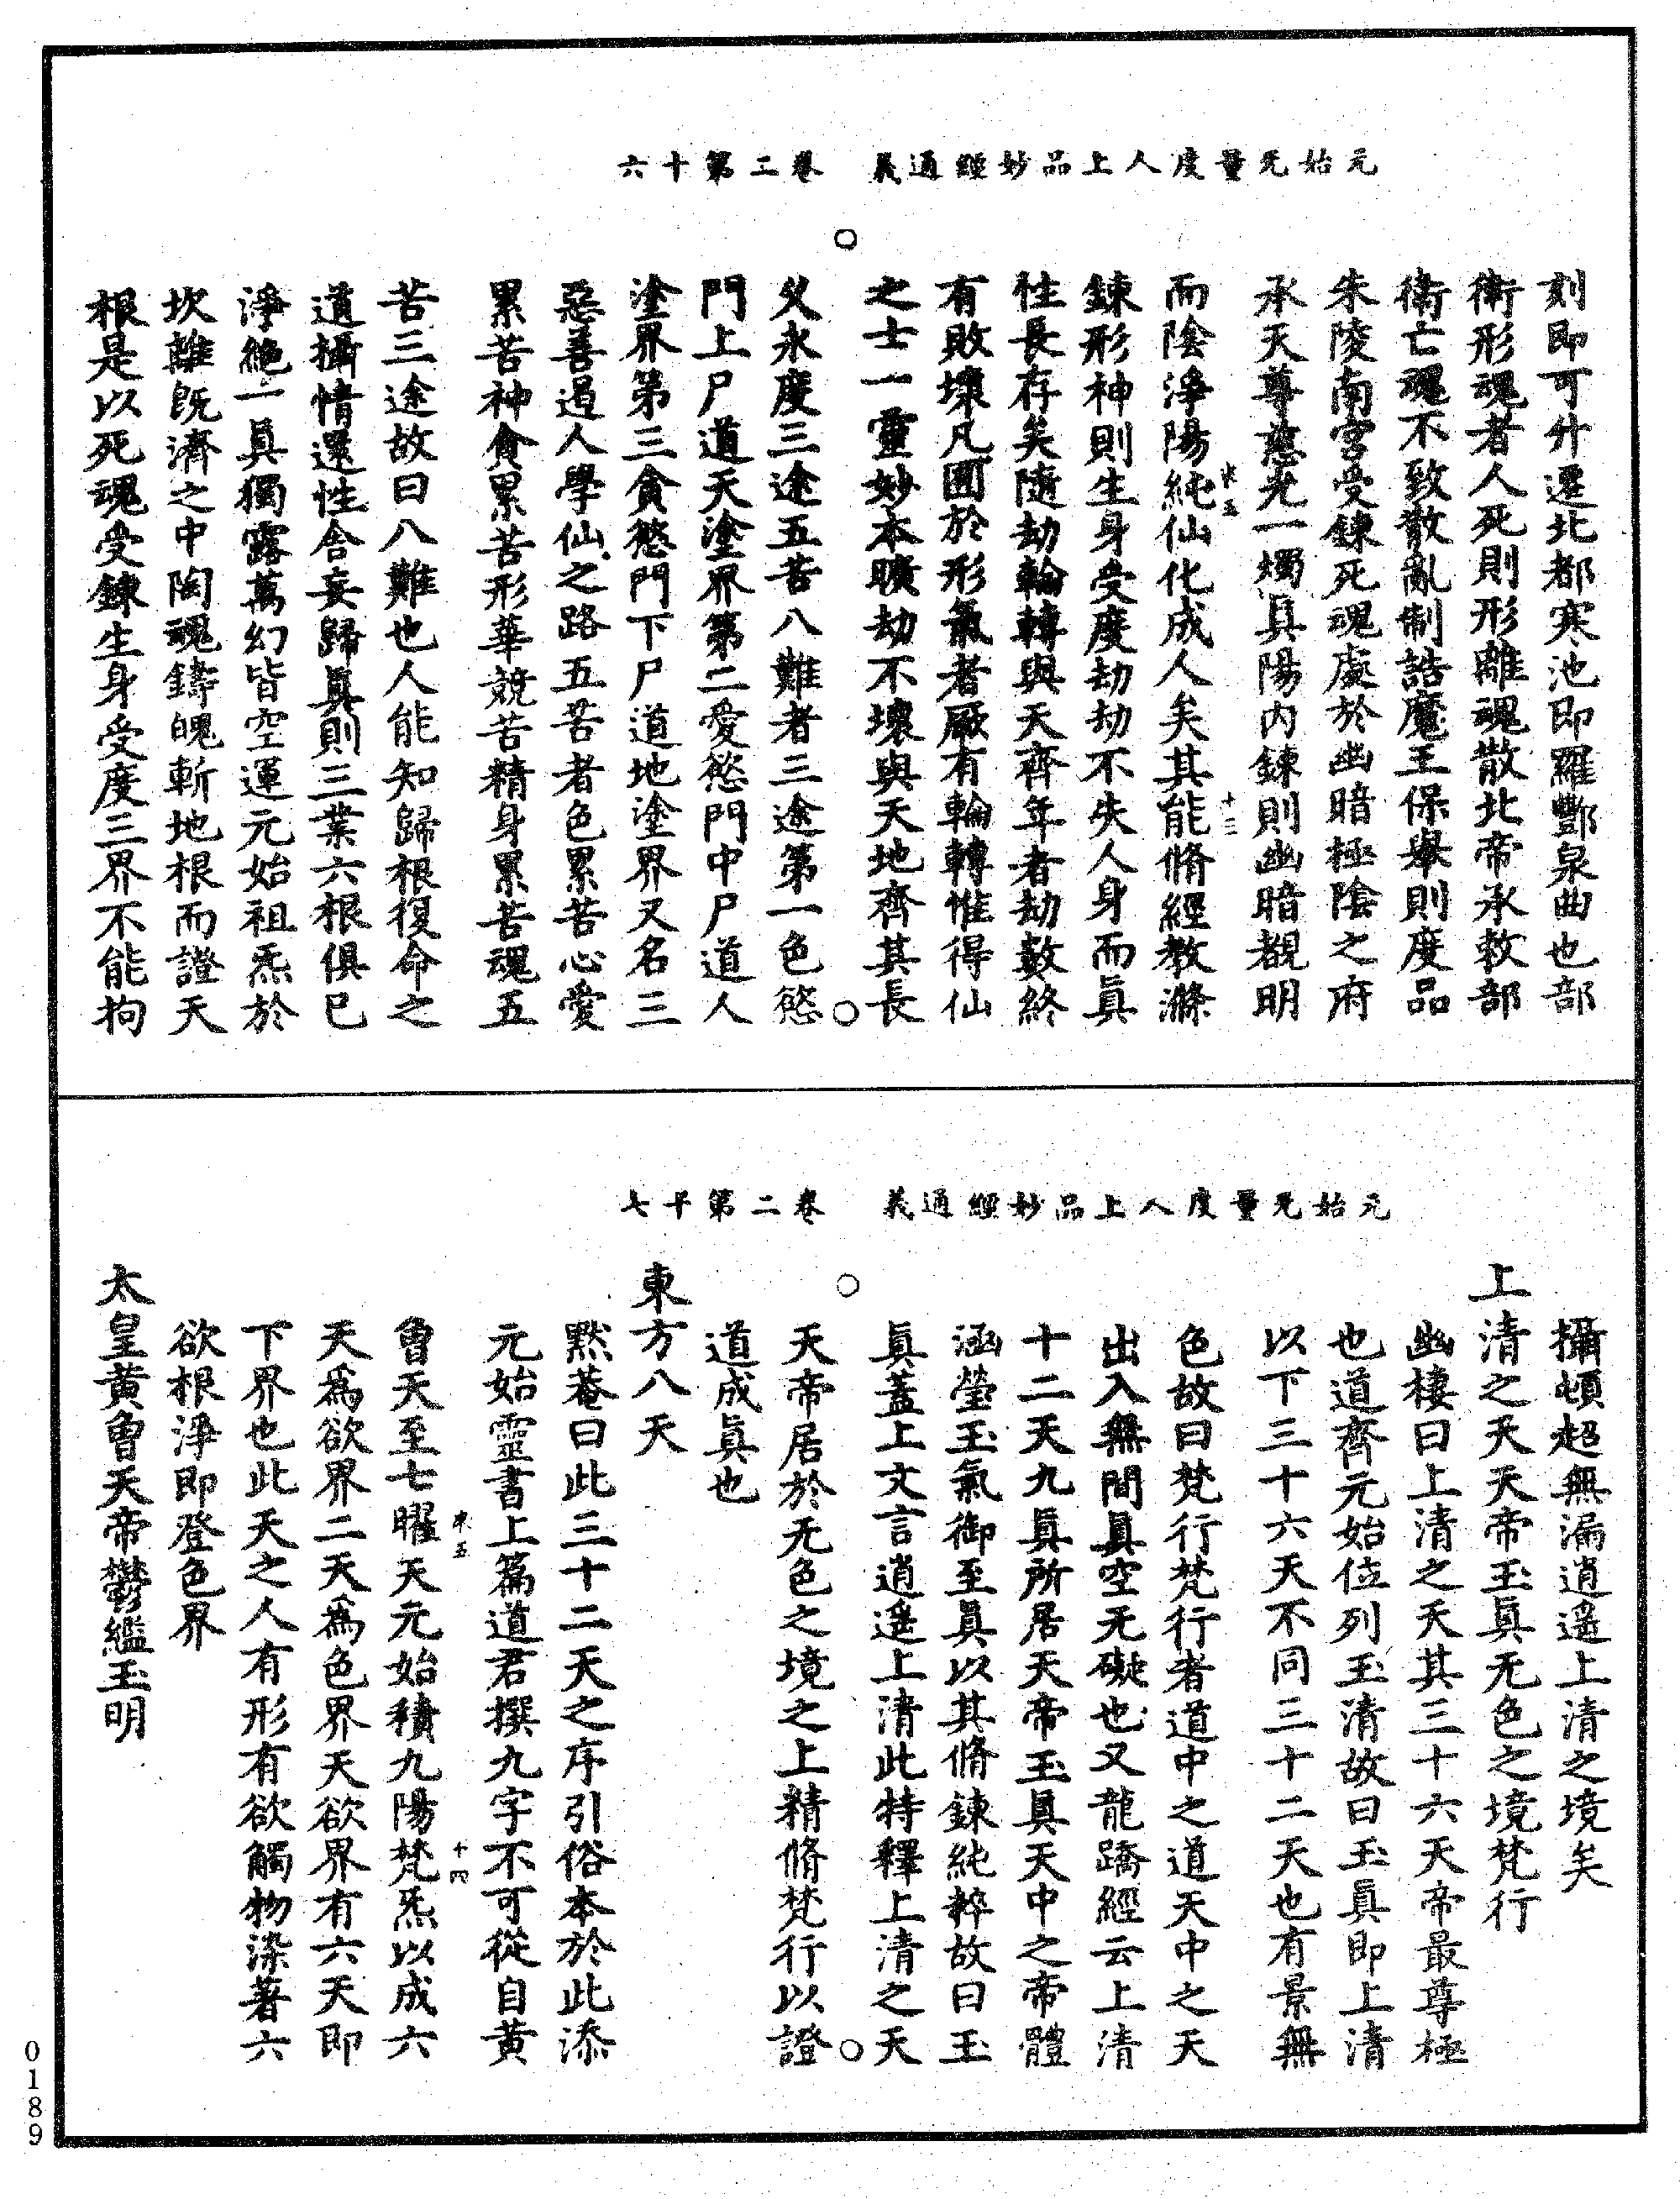 元始无量度人上品妙經通義　卷二第十六
刻即可升遷北都寒池即羅酆泉曲也部
衛形魂者人死則形離魂散北帝承敕部
衛亡魂不致散亂制誥魔王保舉則度品
朱陵南宮受鍊死魂處於幽暗極陰之府
承天尊慈光一燭具陽內鍊則幽暗覩明
而陰淨陽純仙化成人矣其能脩經教滌
鍊形神則生身受度劫劫不失人身而眞
性長存矣隨劫輪轉與天齊年者劫數終
有敗壞凡囿於形氣者厥有輪轉惟得仙
之士一靈妙本曠劫不壞與天地齊其長
父永度三途五苦八難者三途第一色慾
門上尸道天塗界第二愛慾門中尸道人
塗界第三貪慾門下尸道地塗界又名三
惡善遏人學仙之路五苦者色累苦心愛
累苦神貪累苦形華競苦精身累苦魂五
苦三途故曰八難也人能知歸根復命之
道攝情還性舍妄歸眞則三業六根俱巳
淨絕一眞獨露萬幻皆空運元始祖炁於
坎離旣濟之中陶魂鑄魄斬地根而證天
根是以死魂受鍊生身受度三界不能拘
元始无量度人上品妙經通義　卷二第十七
攝頓超無漏逍遙上清之境矣
上清之天天帝玉眞无色之境梵行
幽棲曰上清之天其三十六天帝最尊極
也道齊元始位列玉清故曰玉眞即上清
以下三十六天不同三十二天也有景無
色故曰梵行梵行者道中之道天中之天
出入無間眞空无礙也又龍蹻經云上清
十二天九眞所居天帝玉眞天中之帝體
涵瑩玉氣御至眞以其脩鍊純粹故曰玉
眞蓋上文言逍遙上清此特釋上清之天
天帝居於无色之境之上精脩梵行以證
道成眞也
東方八天
默菴曰此三十二天之序引俗本於此添
元始靈書上篇道君撰九字不可從自黃
曾天至七曜天元始積九陽梵炁以成六
天爲欲界二天爲色界天欲界有六天即
下界也此天之人有形有欲觸物染著六
欲根淨即登色界
太皇黃曾天帝鬱繿玉明
十三
十四
0189